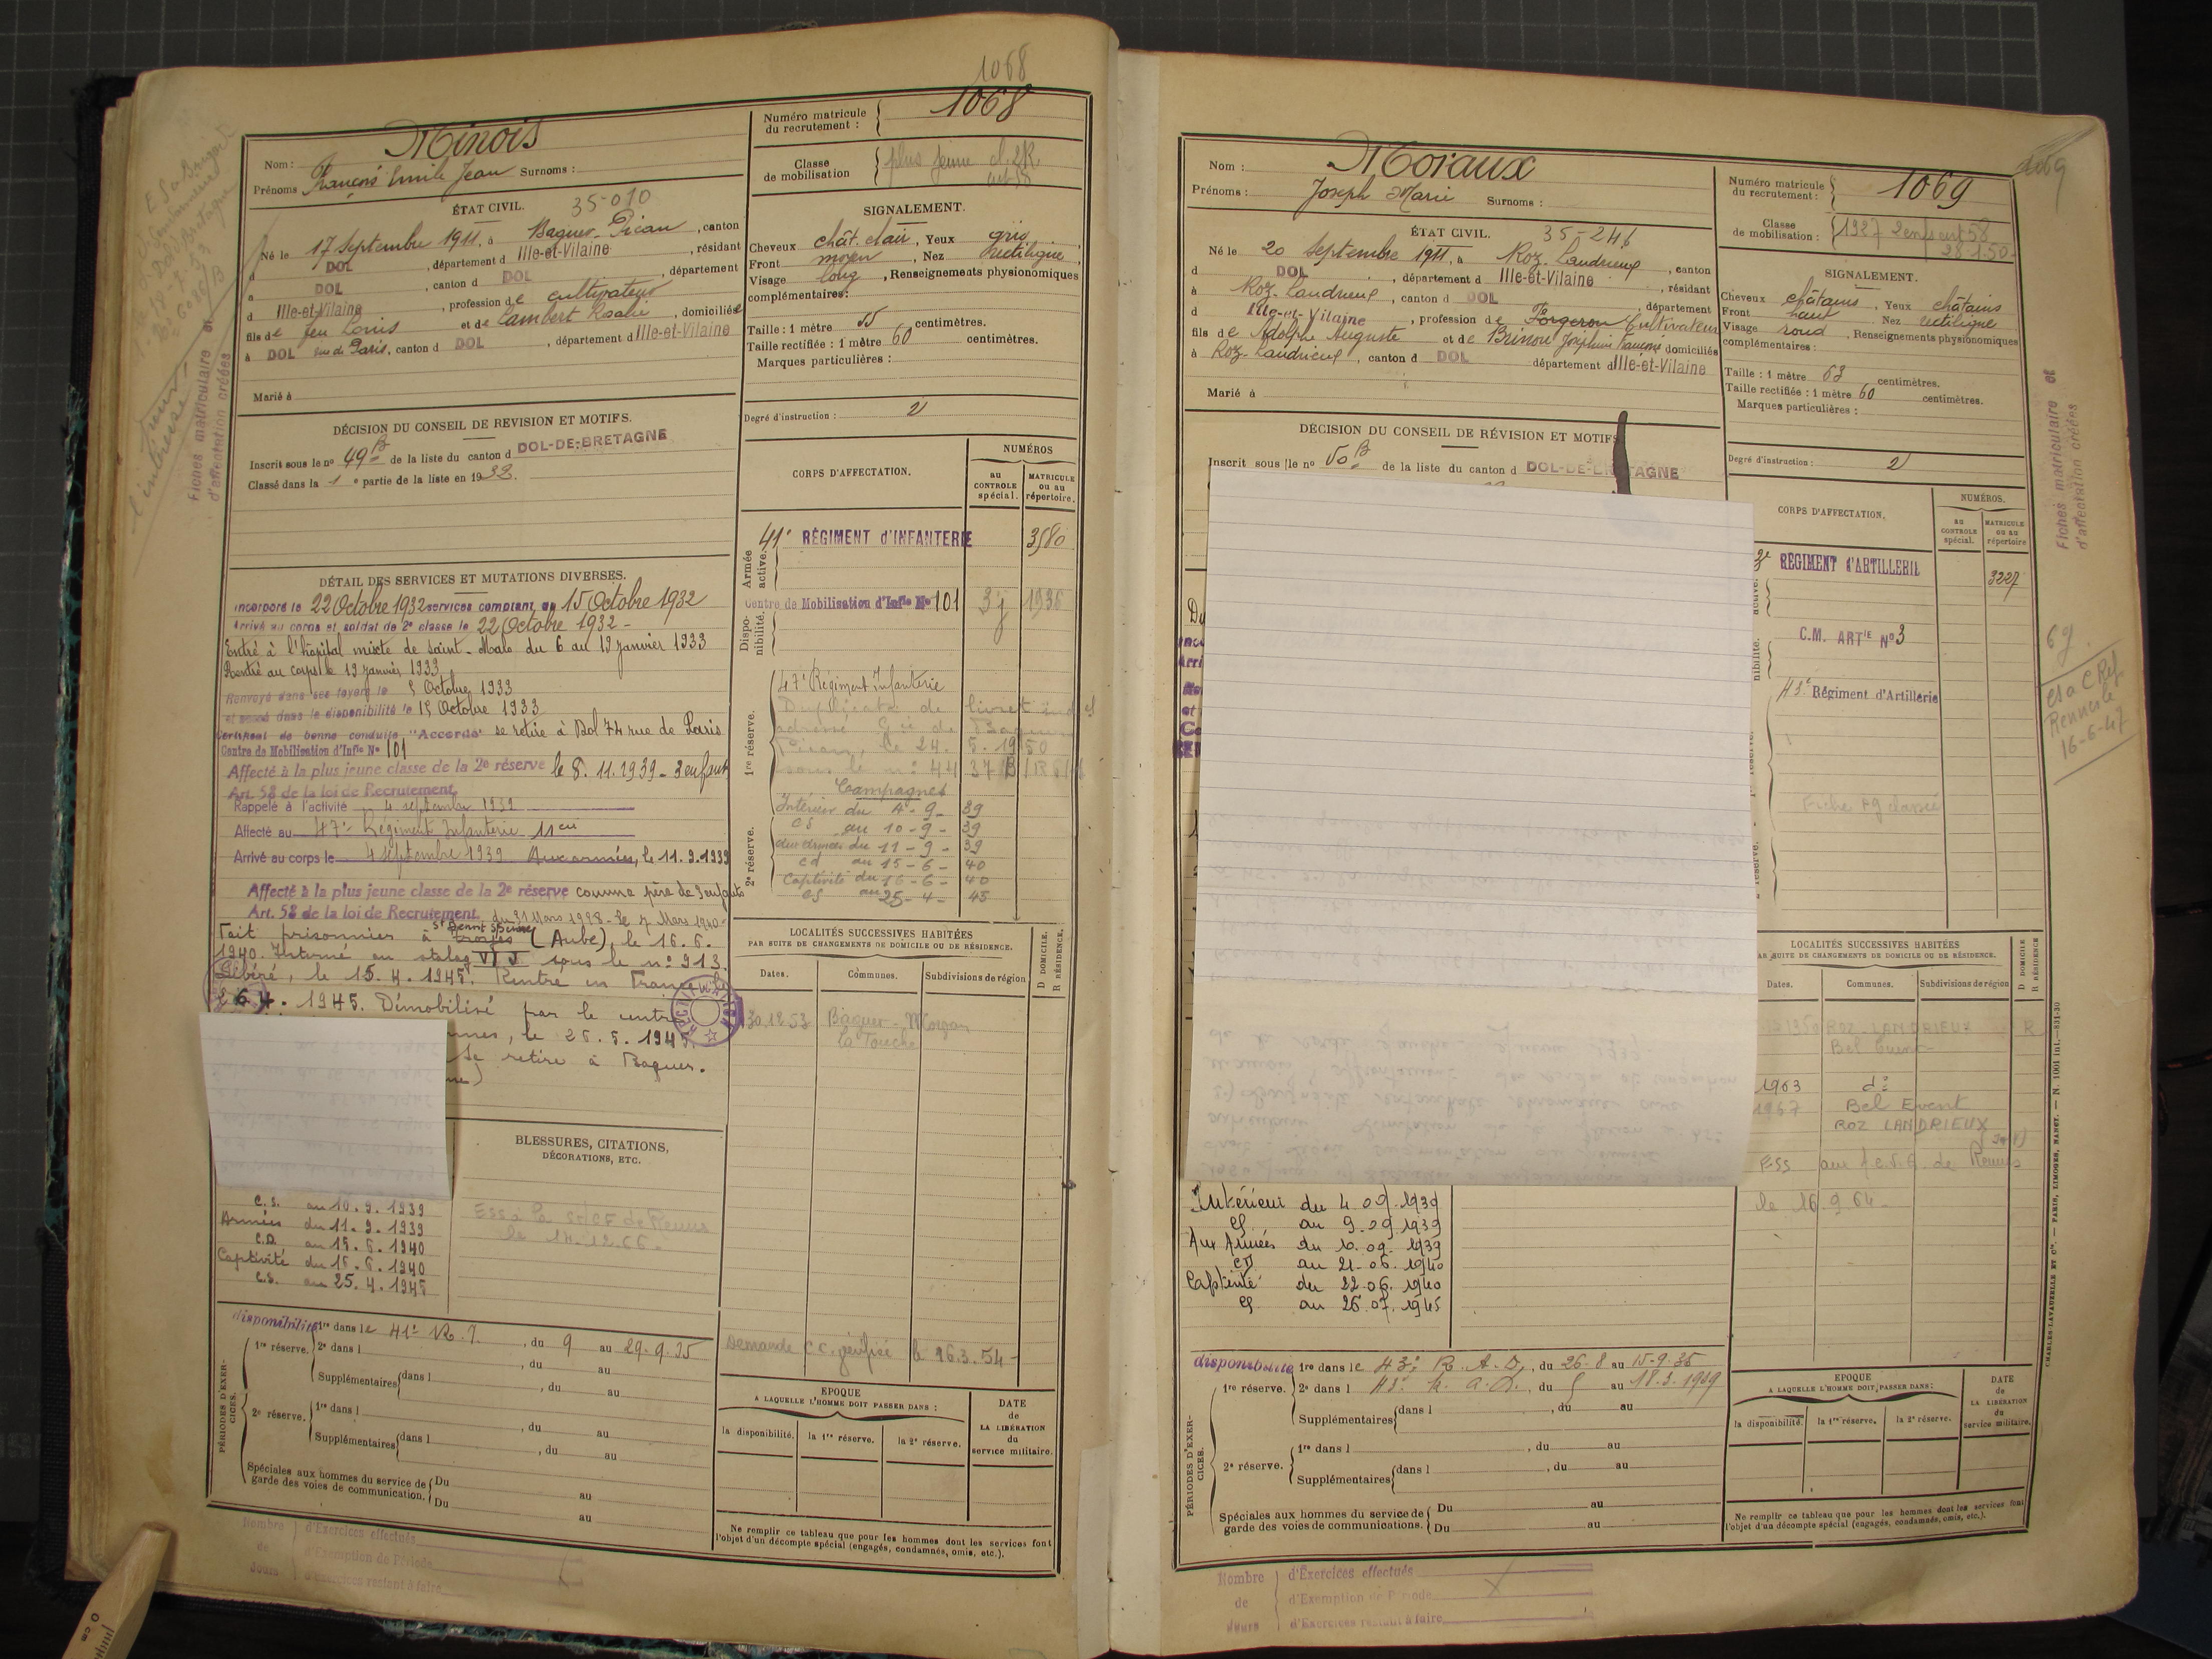 1068
1068
Nom : Minois
Prénoms François Emile Jean Surnoms :
Numéro matricule du recrutement : 1068
Classe de mobilisation plus jeune cl. 2R art 58
ÉTAT CIVIL. 35-010
Né le 17 Septembre 1911, à Baguer-Pican, canton
d DOL, département d Ille-et-Vilaine, résidant
à DOL, canton d DOL, département
d Ille-et-Vilaine, profession de cultivateur
fils de feu Louis et de Lambert Rosalie, domiciliée
à DOL rue de Paris, canton d DOL, département d Ille-et-Vilaine
Marié à
SIGNALEMENT.
Cheveux chât. clair, Yeux gris,
Front moyen, Nez rectiligne,
Visage long, Renseignements physionomiques
complémentaires :
Taille : 1 mètre 55 centimètres.
Taille rectifiée : 1 mètre 60 centimètres.
Marques particulières :
Degré d'instruction : 2
DÉCISION DU CONSEIL DE REVISION ET MOTIFS.
Inscrit sous le nº 49 B de la liste du canton d DOL-DE-BRETAGNE
Classé dans la 1e partie de la liste en 1932.
CORPS D'AFFECTATION.
NUMÉROS
au CONTROLE spécial.
MATRICULE ou au répertoire.
Armée active.
41e RÉGIMENT d'INFANTERIE 3580
Disponibilité.
Centre de Mobilisation d'Infie Nº 101 3j 1936
1re réserve.
47e Régiment Infanterie
Duplicata de livret ind el
adressé Gie de Baguer
Pican, le 24. 5. 1950
sous le nº 44 37
Campagnes
Intérieur du 4-9-39
CS au 10-9-39
aux armées du 11-9-39
CD au 15-6-40
Captivité du 16-6-40
CS au 25-4-45
2e réserve.
DÉTAIL DES SERVICES ET MUTATIONS DIVERSES.
Incorporé le 22 Octobre 1932 services comptant du 15 Octobre 1932
Arrivé au corps et soldat de 2e classe le 22 Octobre 1932 -
Entré à l'hôpital mixte de Saint-Malo du 6 au 19 janvier 1933
Rentré au corps le 19 janvier 1933
Renvoyé dans ses foyers le 5 Octobre 1933
et passé dans la disponibilité le 15 Octobre 1933
Certificat de bonne conduite "Accordé" se retire à Dol 74 rue de Paris
Centre de Mobilisation d'Infie Nº 101
Affecté à la plus jeune classe de la 2e réserve le 8.11.1939 - 3 enfants
Art. 58 de la loi de Recrutement.
Rappelé à l'activité 4 septembre 1939
Affecté au 47e Régiment Infanterie 11 cie
Arrivé au corps le 4 septembre 1939 Aux armées, le 11.9.1939
Affecté à la plus jeune classe de la 2e réserve comme père de 3 enfants
Art. 58 de la loi de Recrutement du 31 Mars 1928 - le 7 Mars 1940
Fait prisonnier à St Benoit S/Seine Troyes (Aube), le 16.6.
1940. Interné au stalag VI J sous le nº 913.
Libéré, le 15.4.1945. Rentré en France le
26.4.1945. Démobilisé par le centre
nnes, le 25.5.1945.
Se retire à Baguer.
ne)
C.S. au 10.9.1939
Armées du 11.9.1939
C.D. au 15.6.1940
Captivité du 16.6.1940
C.S. au 25.4.1945
BLESSURES, CITATIONS,
DÉCORATIONS, ETC.
ESS à la St/CF de Rennes
le 14.12.66 -
LOCALITÉS SUCCESSIVES HABITÉES
PAR SUITE DE CHANGEMENTS DE DOMICILE OU DE RÉSIDENCE.
Dates. Communes. Subdivisions de région
D DOMICILE.
R RÉSIDENCE.
30.12.53 Baguer-Morvan
la Touche
Demande C.C. vérifiée le 26.3.54 -
PÉRIODES D'EXERCICES.
disponibilité 1re dans le 41e R.I., du 9 au 29.9.35
1re réserve. 2e dans l , du au
Supplémentaires dans l , du au
2e réserve. 1re dans l , du au
Supplémentaires dans l , du au
Spéciales aux hommes du service de garde des voies de communication. Du au
Du au
EPOQUE
A LAQUELLE L'HOMME DOIT PASSER DANS :
la disponibilité. la 1re réserve. la 2e réserve.
DATE de LA LIBÉRATION du service militaire.
Ne remplir ce tableau que pour les hommes dont les services font
l'objet d'un décompte spécial (engagés, condamnés, omis, etc.).
Nombre de Jours
d'Exercices effectués
d'Exemption de Période
d'Exercices restant à faire
Fiches matriculaire et
d'affectation créées
l'intéressé
1069
Nom : Moraux
Prénoms : Joseph Marie Surnoms :
Numéro matricule du recrutement : 1069
Classe de mobilisation : 1927 2 enf art 58
28-1-50-
ÉTAT CIVIL. 35-246
Né le 20 Septembre 1911, à Roz-Landrieux, canton
d DOL, département d Ille-et-Vilaine, résidant
à Roz-Landrieux, canton d DOL, département
d Ille-et-Vilaine, profession de Forgeron Cultivateur
fils de Adolphe Auguste et de Brinou Joséphine domiciliés
à Roz-Landrieux, canton d DOL département d Ille-et-Vilaine
Marié à
SIGNALEMENT.
Cheveux châtains, Yeux châtains
Front haut Nez rectiligne
Visage rond, Renseignements physionomiques
complémentaires :
Taille : 1 mètre 63 centimètres.
Taille rectifiée : 1 mètre 60 centimètres.
Marques particulières :
Degré d'instruction : 2
DÉCISION DU CONSEIL DE RÉVISION ET MOTIFS
Inscrit sous le nº 50 B de la liste du canton d DOL-DE-BRETAGNE
CORPS D'AFFECTATION.
NUMÉROS.
au CONTROLE spécial.
MATRICULE ou au répertoire
RÉGIMENT d'ARTILLERIE 3227
C.M. ARTIE Nº 3
43e Régiment d'Artillerie
Fiche PG classée
Fiches matriculaire et
d'affectation créées
Rennes le
16-6-47
LOCALITÉS SUCCESSIVES HABITÉES
PAR SUITE DE CHANGEMENTS DE DOMICILE OU DE RÉSIDENCE.
Dates. Communes. Subdivisions de région
D DOMICILE
R RÉSIDENCE
1950 ROZ-LANDRIEUX R
1963 dº
1967 Bel Event
ROZ LANDRIEUX
ESS au de Rennes
le 16.9.64 -
Intérieur du 4.09.1939
CS au 9.09.1939
Aux Armées du 10.09.1939
CD au 21.06.1940
Captivité du 22.06.1940
CS au 26.07.1945
PÉRIODES D'EXERCICES.
disponibilité 1re dans le 43e R.A.D, du 26.8 au 15-9-35
1re réserve. 2e dans l 43e R.A.D., du 5 au 18.3.1939
Supplémentaires dans l , du au
2e réserve. 1re dans l , du au
Supplémentaires dans l , du au
Spéciales aux hommes du service de garde des voies de communications. Du au
Du au
EPOQUE
A LAQUELLE L'HOMME DOIT PASSER DANS :
la disponibilité. la 1re réserve. la 2e réserve.
DATE de LA LIBÉRATION du service militaire.
Ne remplir ce tableau que pour les hommes dont les services font
l'objet d'un décompte spécial (engagés, condamnés, omis, etc.).
CHARLES-LAVAUZELLE ET Cie. — PARIS, LIMOGES, NANCY. — N. 1001 int.—831-30
Nombre de Jours
d'Exercices effectués
d'Exemption de Période
d'Exercices restant à faire
0 cm